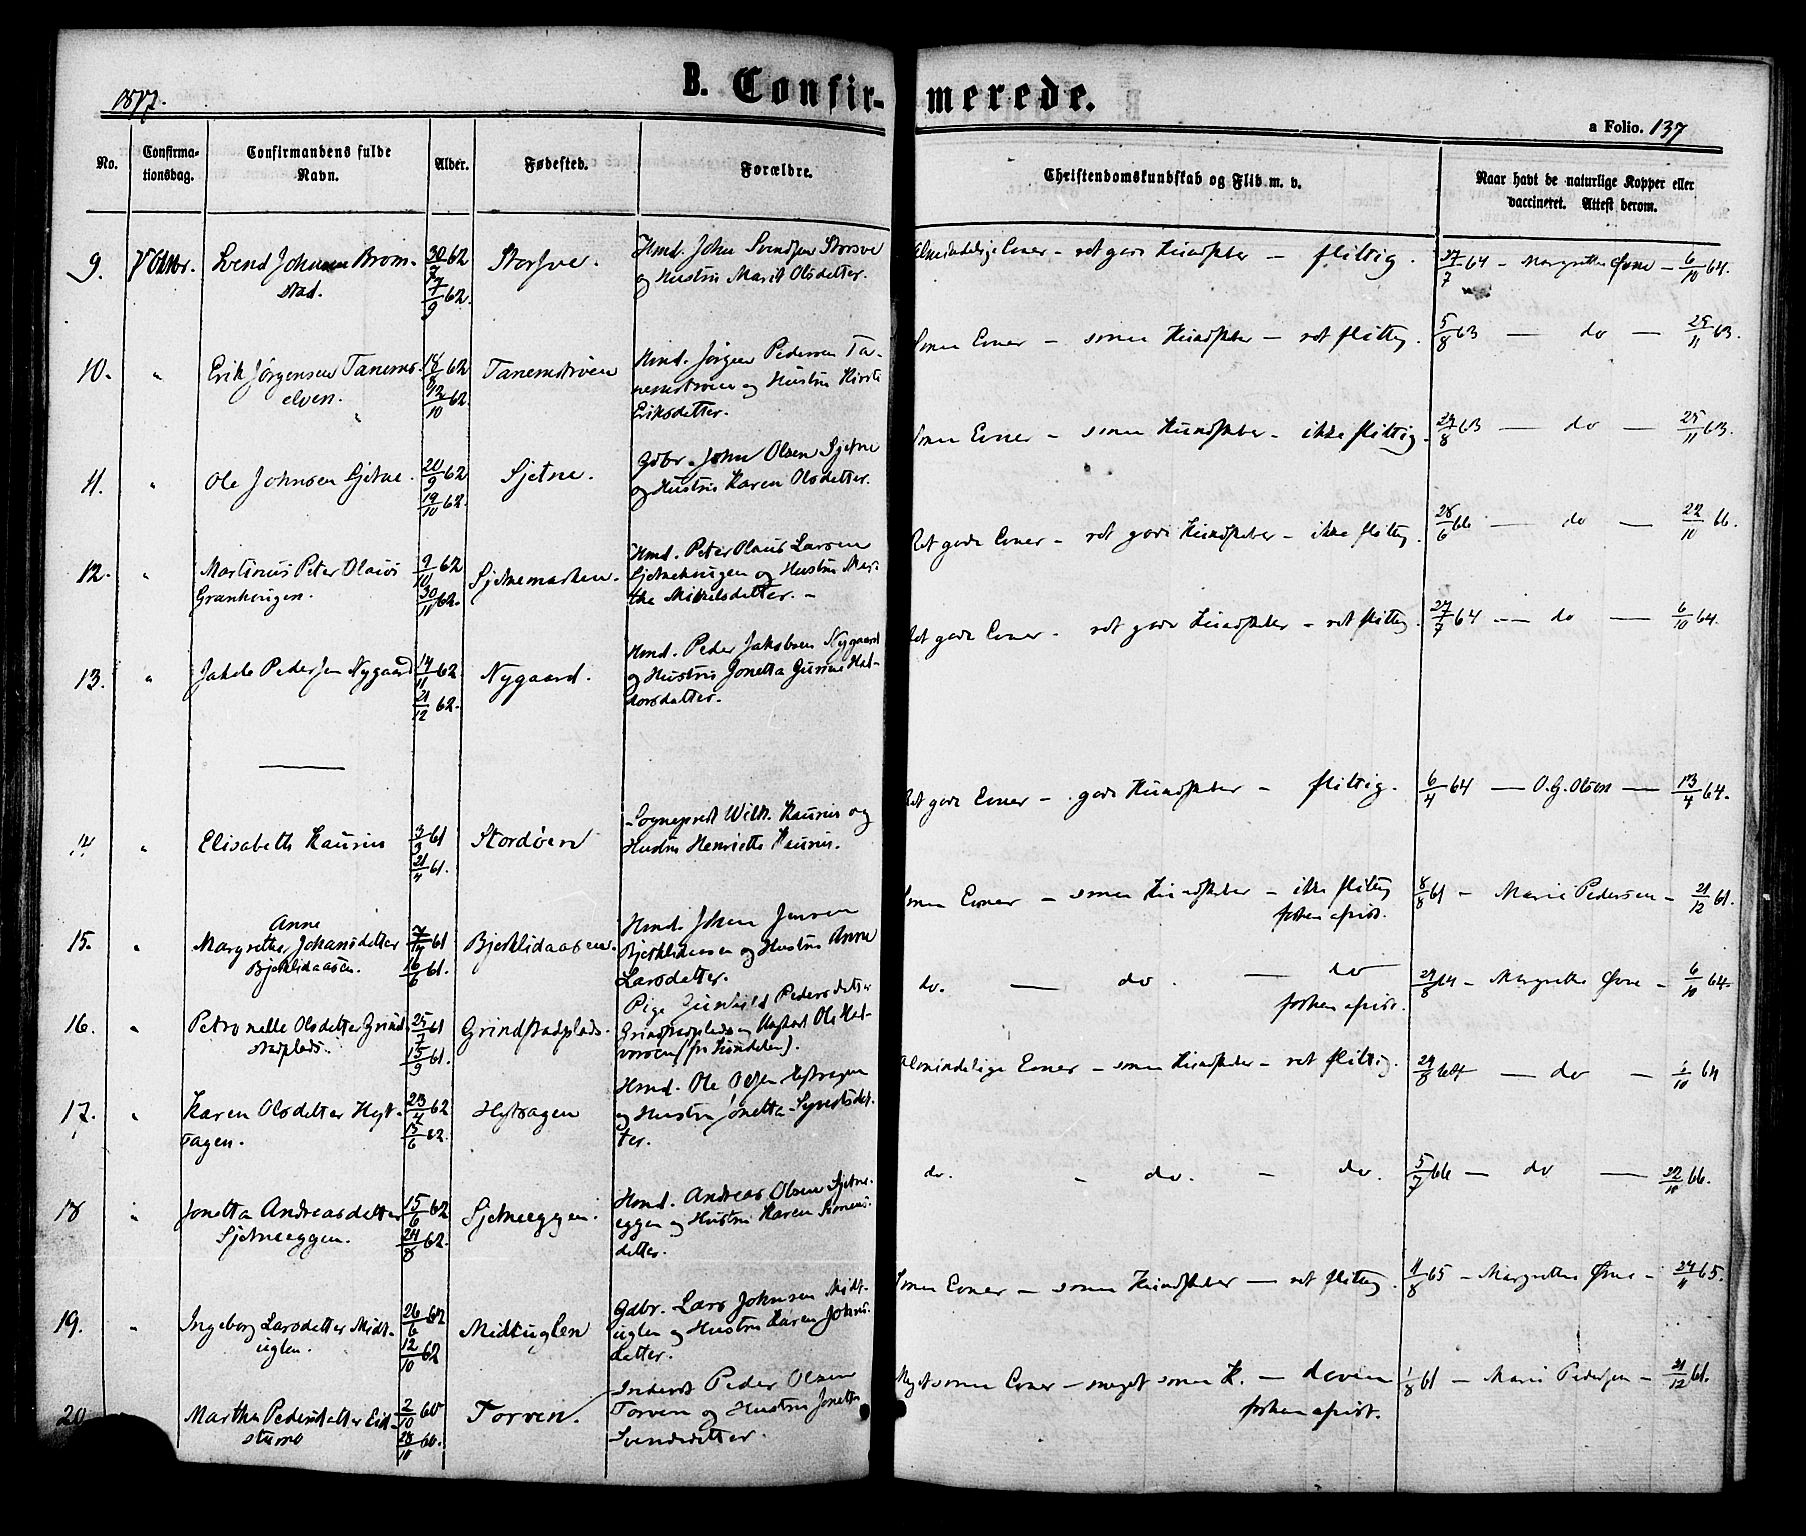 1877.
B. Confir-
merede.
a Folio. 137
No.
Confirma-
tionsdag.
Confirmandens fulde
Navn.
Alder.
Fødested.
Forældre.
Christendomskundskab og Flid m. v.
Naar havt de naturlige Kopper eller
vaccineret. Attest derom.
9.
7 Oktbr.
Svend Johnsen Brom-
stad.
30/7 62
7/9 62.
Storsve.
Hmd. John Svendsen Storsve
og Hustru Marit Olsdatter.
Almindelige Evner - ret gode Kundskaber - flittig.
27/7 64 - Margrethe Øvne - 6/10 64.
10.
"
Erik Jørgensen Tanems-
elven.
18/8 62
12/10 62.
Tanemstrøen
Hmd. Jørgen Pedersen Ta-
nemstrøen og Hustru Kirsti
Eriksdatter.
Smaa Evner - smaa Kundskaber - ret flittig.
5/8 63 - do - 25/11 63.
11.
"
Ole Johnsen Sjetne.
20/9 62
19/10 62.
Sjetne.
Gdbr. John Olsen Sjetne
og Hustru Karen Olsdatter.
Smaa Evner - smaa Kundskaber - ikke flittig.
27/8 63 - do - 25/11 63.
12.
"
Martinus Peter Olaus
Granhaugen.
9/10 62
30/11 62.
Sjetnemarken.
Hmd. Peter Olaus Larsen
Sjetnehaugen og Hustru Mar-
the Mikkelsdatter. -
Ret gode Evner - ret gode Kundskaber - ikke flittig.
28/6 66 - do - 22/10 66.
13.
"
Jakob Pedersen Nygaard
14/11 62
21/12 62.
Nygaard.
Hmd. Peder Jakobsen Nygaard
og Hustru Jonetta Gurine Hal-
dorsdatter.
Ret gode Evner - ret gode Kundskaber - ret flittig.
27/7 64 - do - 6/10 64.
14
"
Elisabeth Kaurin
3/3 61
21/4 61.
Stordøen
Sogneprest Wilh. Kaurin og
Hustru Henriette Kaurin.
Ret gode Evner - gode Kundskaber - flittig.
6/4 64 - O. G. Olsen - 13/4 64.
15.
"
Anne
Margrethe Johansdatter
Bjerklidaasen.
7/4 61
16/6 61.
Bjerklidaasen.
Hmd. Johan Jensen
Bjerklidaasen og Hustru Anne
Larsdatter.
Smaa Evner - smaa Kundskaber - ikke flittig
forhen afvist.
8/8 61 - Marie Pedersen - 21/12 61.
16.
"
Petronelle Olsdatter Grind-
stadplads.
25/7 61
15/9 61.
Grindstadplads.
Pige Gunhild Pedersdatter
Grindstadplads og Ungkarl Ole Hal-
vorsen (fra Kiøndalen).
do. - do. - do
forhen afvist.
29/8 64 - Margrethe Øvne - 6/10 64.
17.
"
Karen Olsdatter Hyt-
tagen.
23/4 62
15/6 62.
Hytragen
Hmd. Ole Olsen Hytragen
og Hustru Jonetta Syvertsdat-
ter.
Almindelige Evner - smaa Kundskaber - ret flittig.
29/8 64 - do - 6/10 64
18
"
Jonetta Andreasdatter
Sjetneeggen.
15/6 62
24/8 62.
Sjetneeggen.
Hmd. Andreas Olsen Sjetne-
eggen og Hustru Karen Simons-
datter.
do. - do. - do.
5/7 66 - do - 22/10 66.
19.
"
Ingeborg Larsdatter Midt-
uglen.
26/6 62
12/10 62
Midtuglen
Gdbr. Lars Johnsen Midt-
uglen og Hustru Karen Johns-
datter.
Smaa Evner - smaa Kundskaber - ret flittig.
11/8 65 - Margrethe Øvne - 24/11 65.
20
Martha Pedersdatter Eid-
stumo
2/10 60
28/10 60.
Torven.
Inderst Peder Olsen
Torven og Hustru Jonetta
Svendsdatter.
Meget smaa Evner - meget smaa K. - doven
forhen afvist.
1/8 61 - Marie Pedersen - 21/12 61.